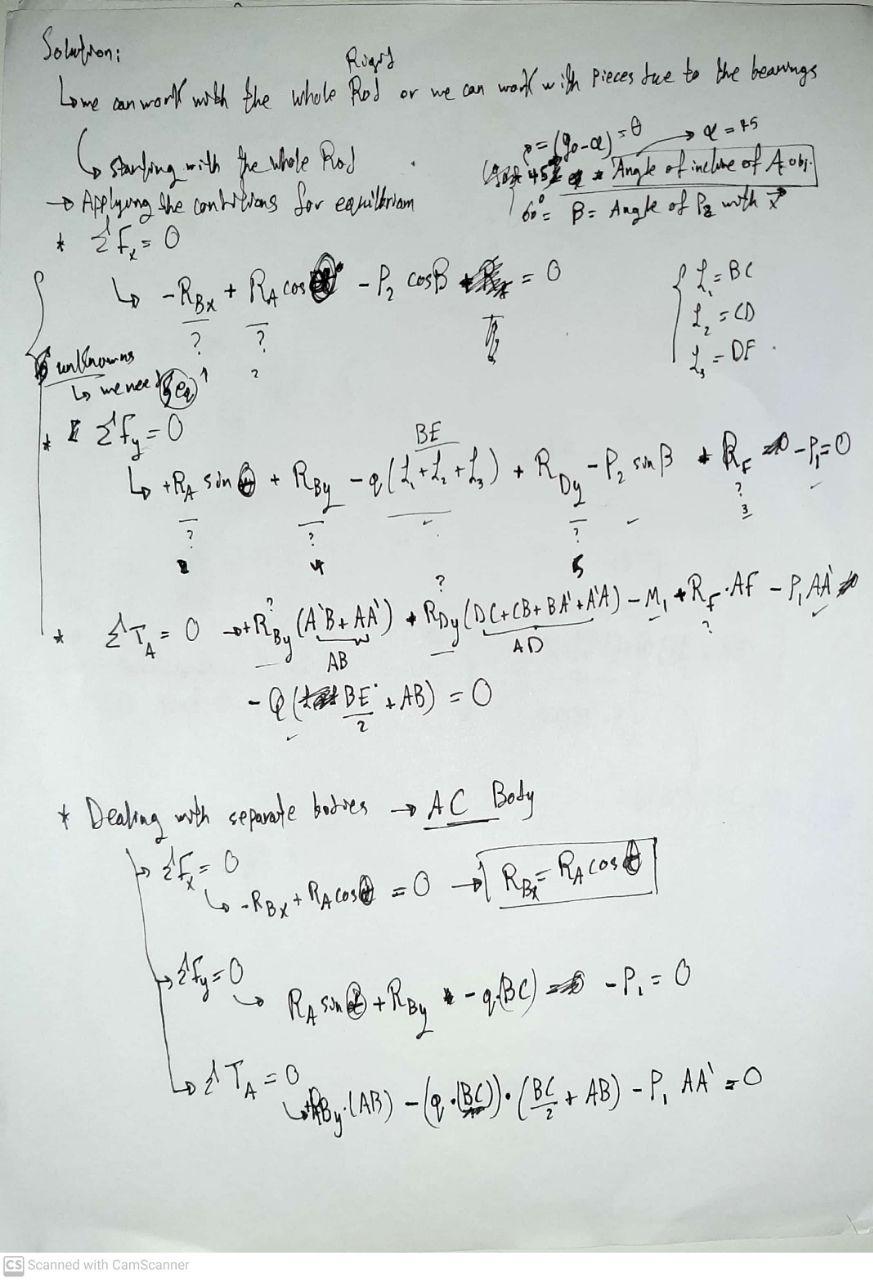 Solution:
Rigid
↳ we can work with the whole Rod or we can work with pieces due to the bearings
↳ starting with the whole Rod
φ = (90-α) = θ → α = 45
* Angle of incline of A obj.
→ Applying the conditions for equilibriam
60° = B = Angle of P2 with x
* ΣFx = 0
↳ -RBx + RA cosθ - P2 cosB = 0
? ? ?
{ L1 = BC
L2 = CD
L3 = DF
unknowns
↳ we need eq
* ΣFy = 0
BE
↳ +RA sinθ + RBy - q(L1 + L2 + L3) + RDy - P2 sinB + RF - P1 = 0
? ? ? ?
2 4 5 3
* ΣTA = 0 → +RBy (A'B + AA') + RDy (DC + CB + BA' + A'A) - M1 + RF · AF - P1 AA'
? ? ?
AB AD
- Q (BE/2 + AB) = 0
* Dealing with separate bodies → AC Body
↳ ΣFx = 0
↳ -RBx + RA cosθ = 0 → RBx = RA cosθ
→ ΣFy = 0
↳ RA sinθ + RBy - q(BC) - P1 = 0
↳ ΣTA = 0
↳ +RBy · (AB) - (q · (BC)) · (BC/2 + AB) - P1 AA' = 0
CS Scanned with CamScanner